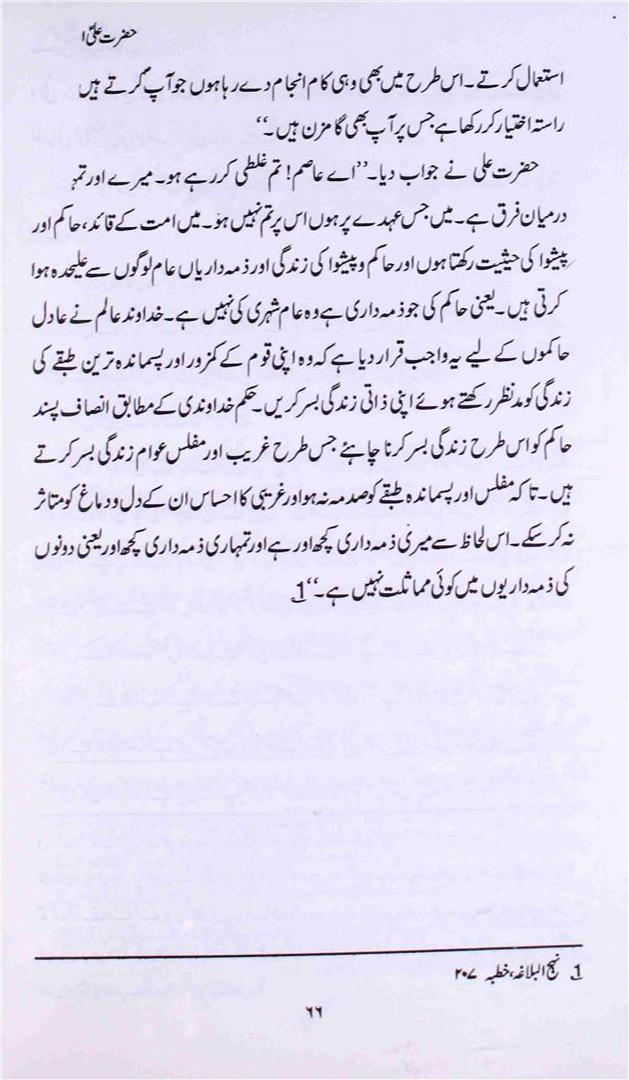 حضرت علیؑ ا
استعمال کرتے۔ اس طرح میں بھی وہی کام انجام دے رہا ہوں جو آپ کرتے ہیں
راستہ اختیار کر رکھا ہے جس پر آپ بھی گامزن ہیں۔‘‘
حضرت علی نے جواب دیا۔ ’’اے عاصم! تم غلطی کر رہے ہو۔ میرے اور تمہ
درمیان فرق ہے۔ میں جس عہدے پر ہوں اس پر تم نہیں ہو۔ میں امت کے قائد، حاکم اور
پیشوا کی حیثیت رکھتا ہوں اور حاکم و پیشوا کی زندگی اور ذمہ داریاں عام لوگوں سے علیحدہ ہوا
کرتی ہیں۔ یعنی حاکم کی جو ذمہ داری ہے وہ عام شہری کی نہیں ہے۔ خداوند عالم نے عادل
حاکموں کے لیے یہ واجب قرار دیا ہے کہ وہ اپنی قوم کے کمزور اور پسماندہ ترین طبقے کی
زندگی کو مدنظر رکھتے ہوئے اپنی ذاتی زندگی بسر کریں۔ حکم خداوندی کے مطابق انصاف پسند
حاکم کو اس طرح زندگی بسر کرنا چاہئے جس طرح غریب اور مفلس عوام زندگی بسر کرتے
ہیں۔ تاکہ مفلس اور پسماندہ طبقے کو صدمہ نہ ہو اور غریبی کا احساس ان کے دل و دماغ کو متاثر
نہ کر سکے۔ اس لحاظ سے میری ذمہ داری کچھ اور ہے اور تمہاری ذمہ داری کچھ اور یعنی دونوں
کی ذمہ داریوں میں کوئی مماثلت نہیں ہے۔‘‘ 1
1 نہج البلاغہ، خطبہ ۲۰۷
۶۶